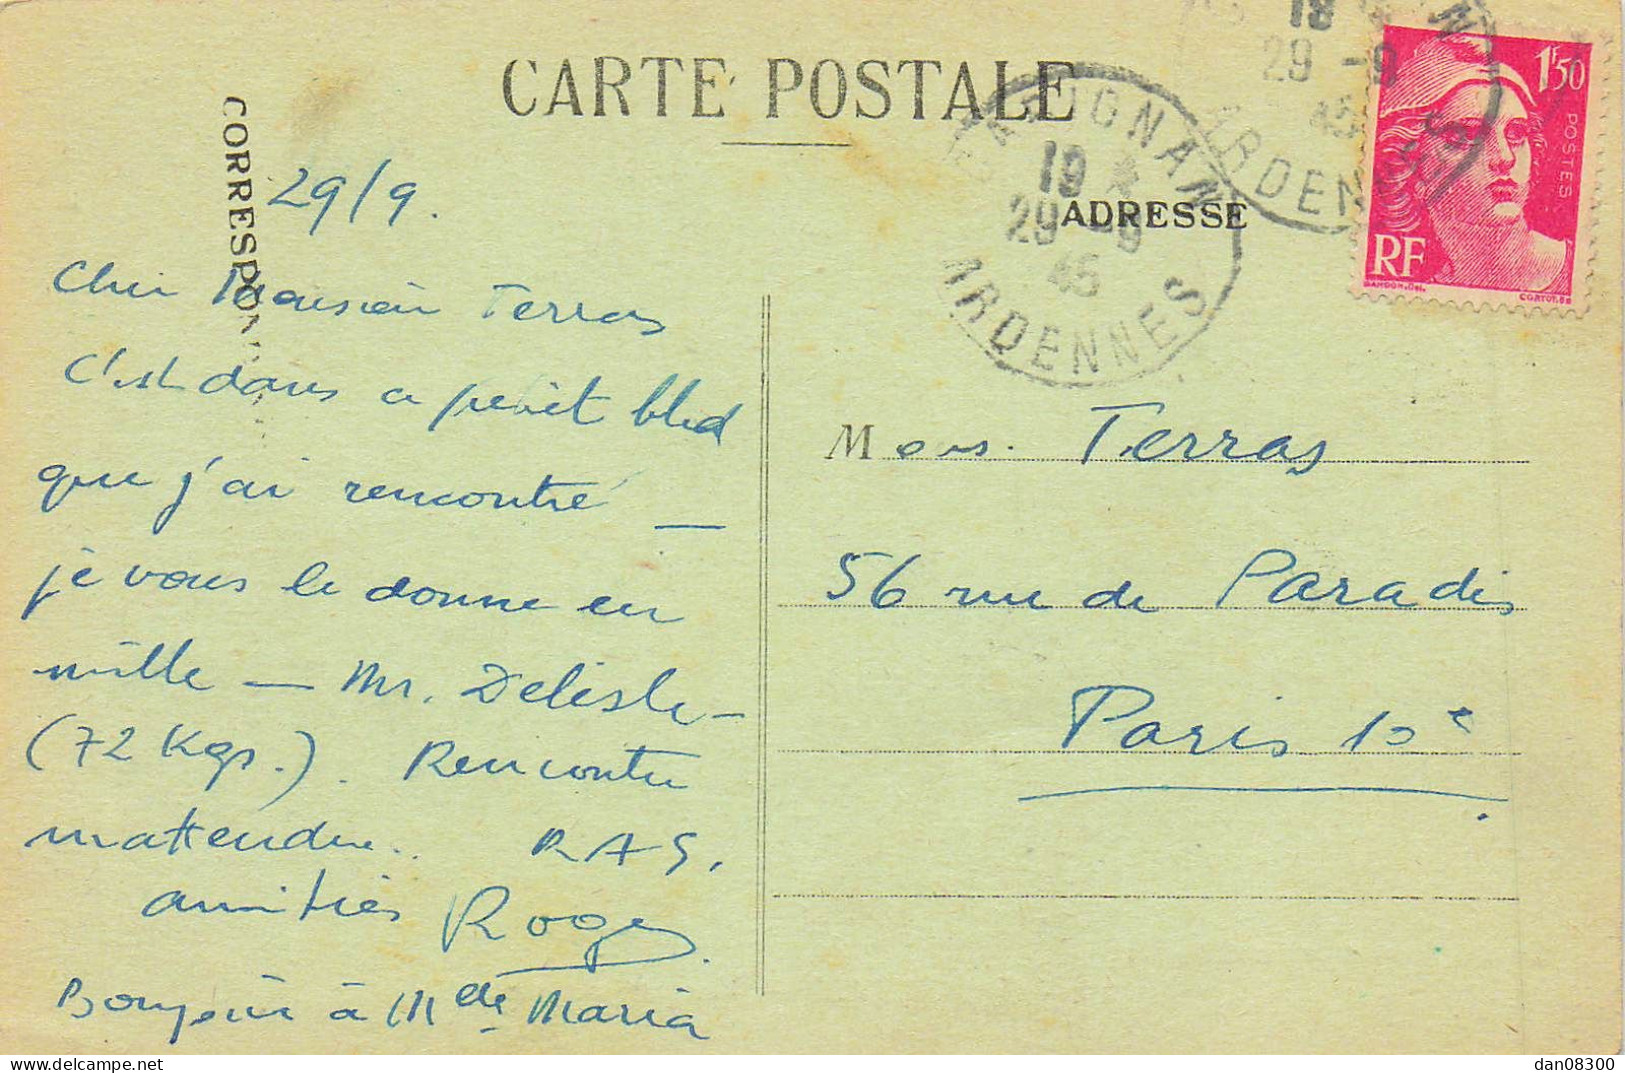 CARTE POSTALE
CORRESPON
ADRESSE
19
29 -9
45
ARDENNES
19
29 -9
45
ARDENNES
1F50
POSTES
RF
GANDON.Del.
CORTOT.Sc
29/9.
Cher Monsieur Terras
C'est dans ce petit bled
que j'ai rencontré —
je vous le donne en
mille — Mr. Delisle —
(72 Kgs.). Rencontre
inattendue. RAS.
amitiés Roger
Bonjour à Mde Maria
Mons. Terras
56 rue de Paradis
Paris 10e
delcampe.net
dan08300